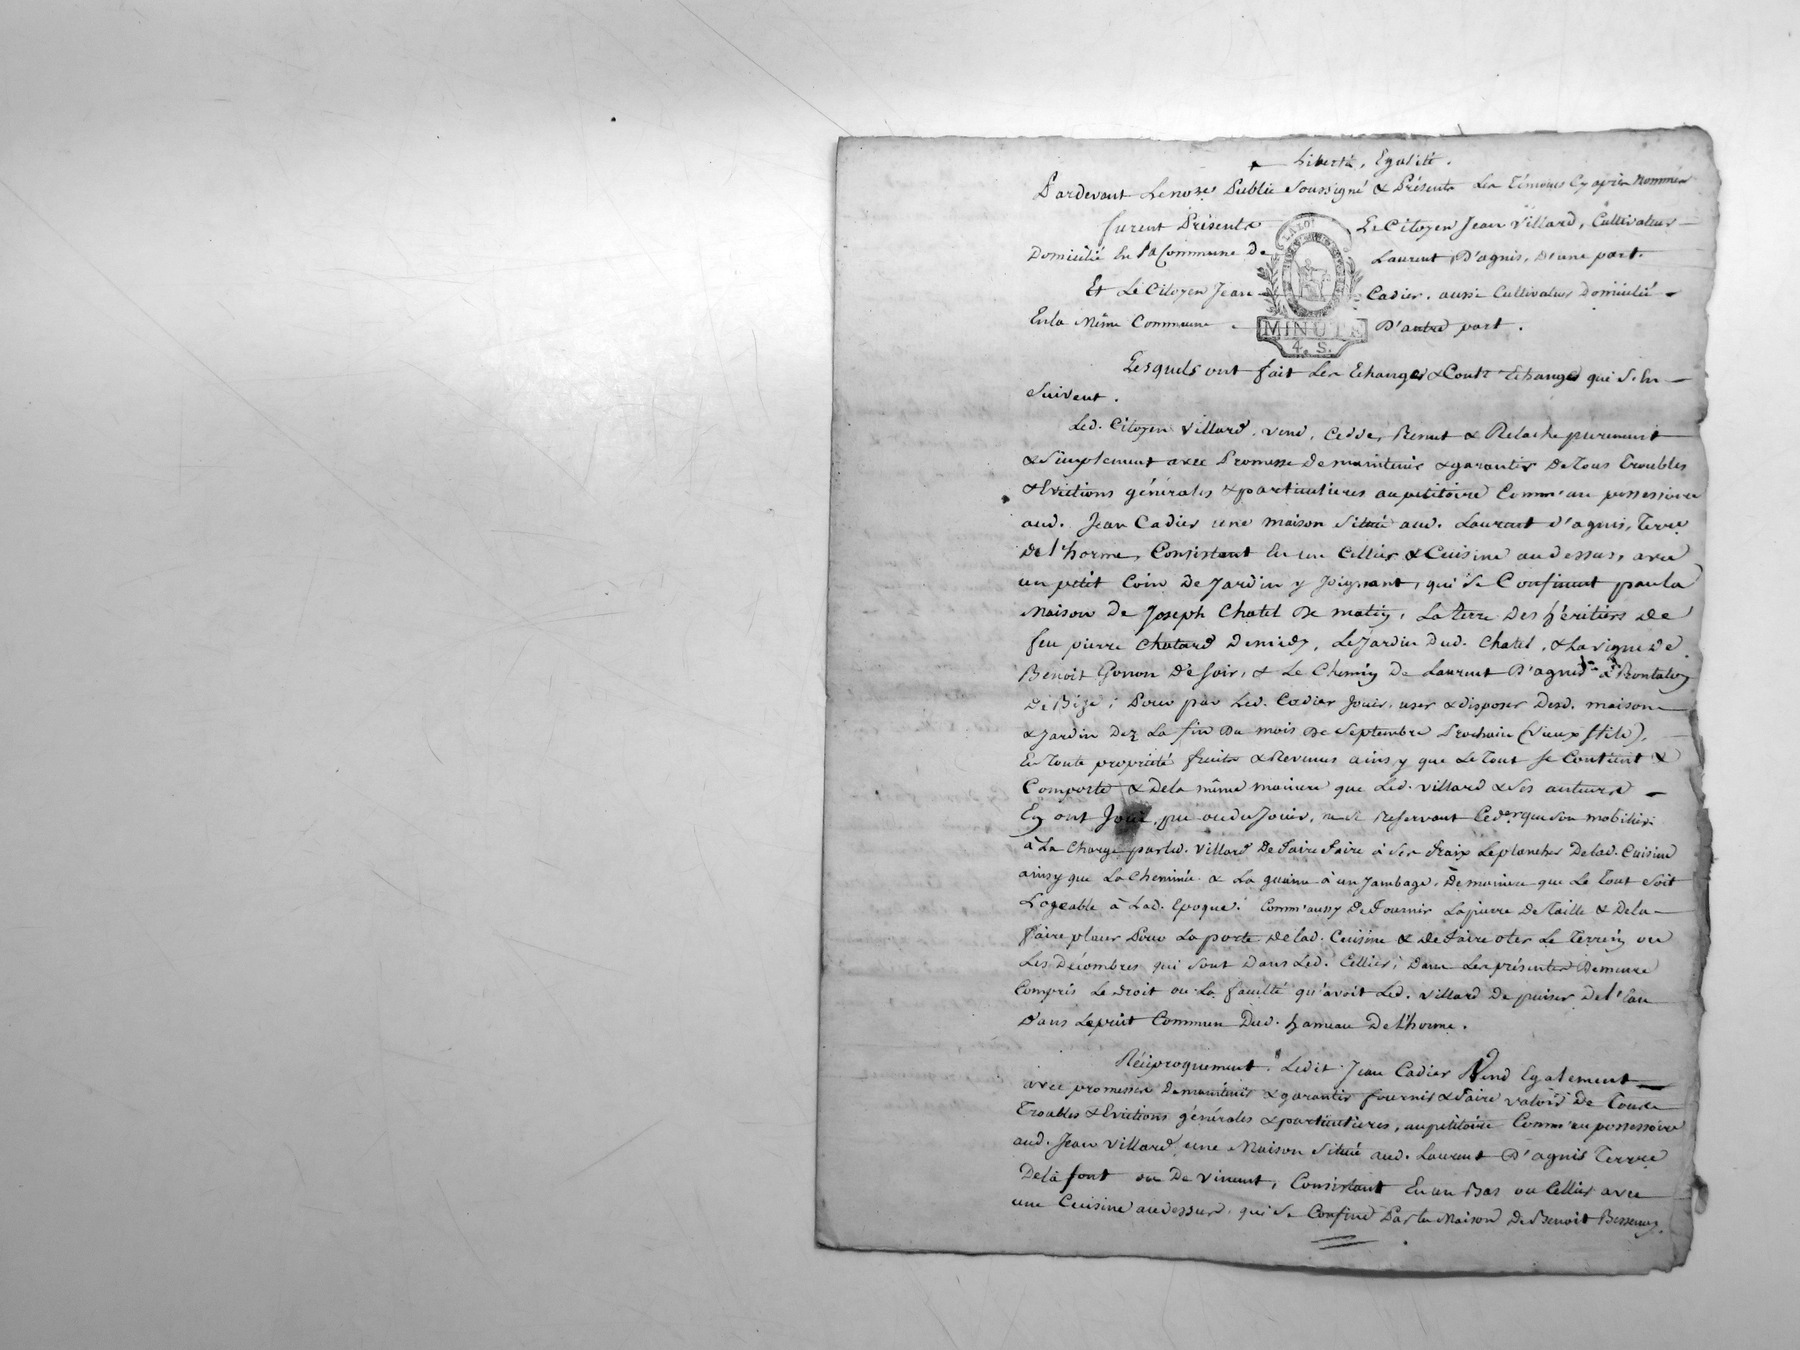 Liberté, Egalité.
Pardevant Le not.re Public Soussigné & Présents Les Témoins Cy après Nommés
furent Présents Le Citoyen Jean Villard, Cultivateur
Domicilié En la Commune De Laurent D'agnis, D'une part.
Et Le Citoyen Jean Cadier, aussi Cultivateur Domicilié
En la Même Commune D'autre part.
LA LOI
MINUTE
4. S.
Lesquels ont fait Les Echanges & Contr'Echanges qui S'En
Suivent.
Led. Citoyen Villard, vend, Cedde, Remet & Relache purement
& Simplement avec Promesse De maintenir & garantir De Tous Troubles
& Evictions générales & particulieres au petitoire Comm'au possessoire
aud. Jean Cadier une maison Situé aud. Laurent d'agnis, Terre
De l'horme, Consistant En un Cellier & Cuisine au dessus, avec
un petit Coin De Jardin y Joignant, qui Se Confinent par la
Maison De Joseph Chatel De matin, La terre Des héritiers De
feu pierre Chatard De midy, Le Jardin Dud. Chatel, & La vigne De
Benoit Gonon De Soir, & Le Chemin De Laurent D'agnis à Rontalon
De Bize; Pour par Led. Cadier Jouir, user & disposer Desd. maison
& Jardin Dez La fin Du mois De Septembre Prochain (vieux Stile),
En Toute propriété fruits & Revenus ainsy que Le Tout Se Contient &
Comporte & De la même maniere que Led. Villard & Ses auteurs
En ont Joui, pu ou du Jouir, ne Se Reservant Ced.er que Son mobilier
à La Charge par led. Villard De Faire Faire à Ses Fraix Le plancher De lad. Cuisine
ainsy que La Cheminée & La guaine à un Jambage, De maniere que Le Tout Soit
Logeable à Lad. Epoque. Comm'aussy De Fournir La pierre De Taille & De la
Faire placer Pour La porte De lad. Cuisine & De Faire oter Le Terrein ou
Les Décombres qui Sont Dans Led. Cellier; Dans Les présentes Demeure
Compris Le Droit ou La faculté qu'avoit Led. Villard De puiser De l'Eau
Dans Le puit Commun Dud. hameau De l'horme.
Réciproquement Ledit Jean Cadier Vend Egalement
avec promesse De maintenir & garantir fournir & Faire valoir De Tous
Troubles & Evictions générales & particulieres, au petitoire Comm'au possessoire
aud. Jean Villard une Maison Situé aud. Laurent D'agnis Terre
De la font ou De Vincent, Consistant En un Bas ou Cellier avec
une Cuisine au dessus qui Se Confine Par la Maison De Benoit Bessenay,